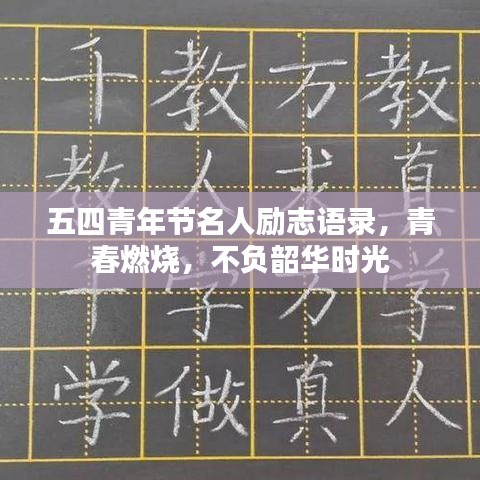 千教万教
教人求真
五四青年节名人励志语录，青
春燃烧，不负韶华时光
千学万学
学做真人